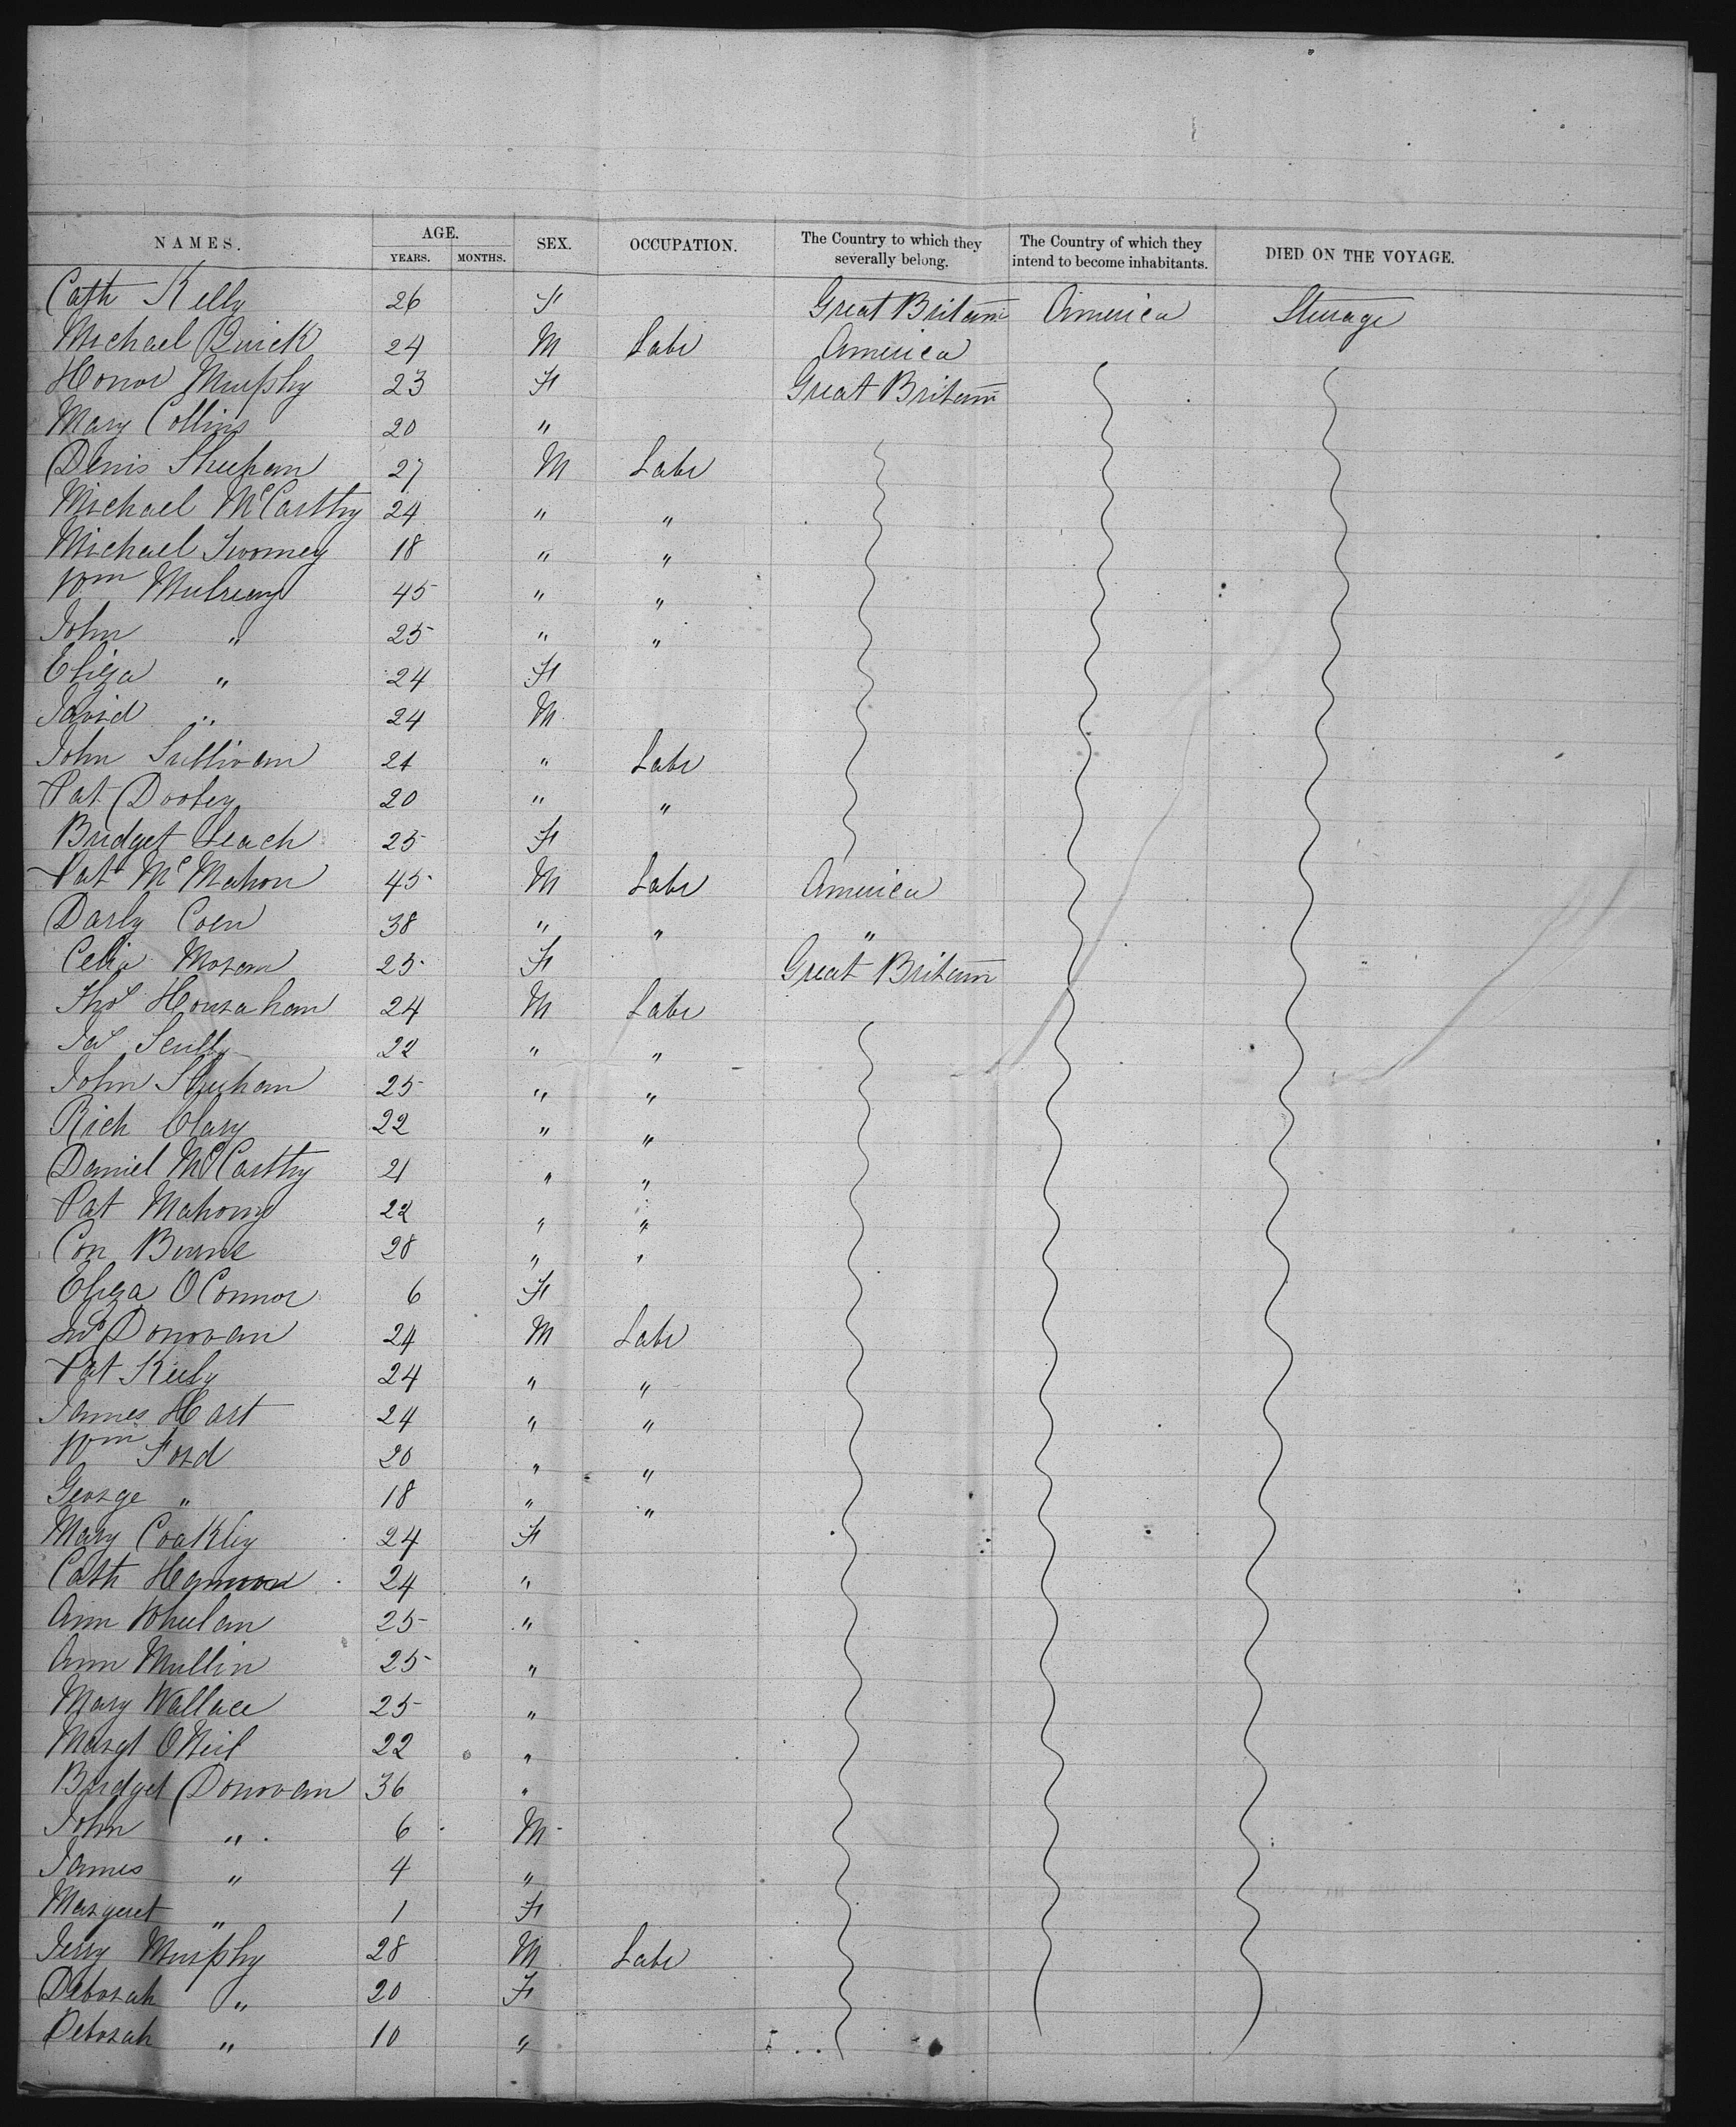 NAMES. AGE. SEX. OCCUPATION. The Country to which they severally belong. The Country of which they intend to become inhabitants. DIED ON THE VOYAGE.
YEARS. MONTHS.
Cath Kelly 26 F Great Britain America Sterage
Michael Quick 24 M Labr America
Honor Murphy 23 F Great Britain
Mary Collins 20 "
Denis Sheehan 27 M Labr
Michael McCarthy 24 " "
Michael Twomey 18 " "
Wm 45 " "
John " 25 " "
Eliza " 24 F
David " 24 M
John Sullivan 21 " Labr
Pat Dooley 20 " "
Bridget Leach 25 F
Patk McMahon 45 M Labr America
Darby Coen 38 " " "
Celia Moran 25 F Great Britain
Thos Hourahan 24 M Labr
Jas Scully 22 " "
John Sheehan 25 " "
Rich Clary 22 " "
Daniel McCarthy 21 " "
Pat Mahony 22 " "
Con Burns 28 " "
Eliza OConnor 6 F
Jno Donovan 24 M Labr
Pat Kiely 24 " "
James Hart 24 " "
Wm Ford 20 " "
George " 18 " "
Mary Coakley 24 F
Cath Hannon 24 "
Ann Wheelan 25 "
Ann Mullin 25 "
Mary Wallace 25 "
Margt ONeil 22 "
Bridget Donovan 36 "
John " 6 M
James " 4 "
Margeret " 1 F
Jerry Murphy 28 M Labr
Deborah " 20 F
Deborah " 10 "